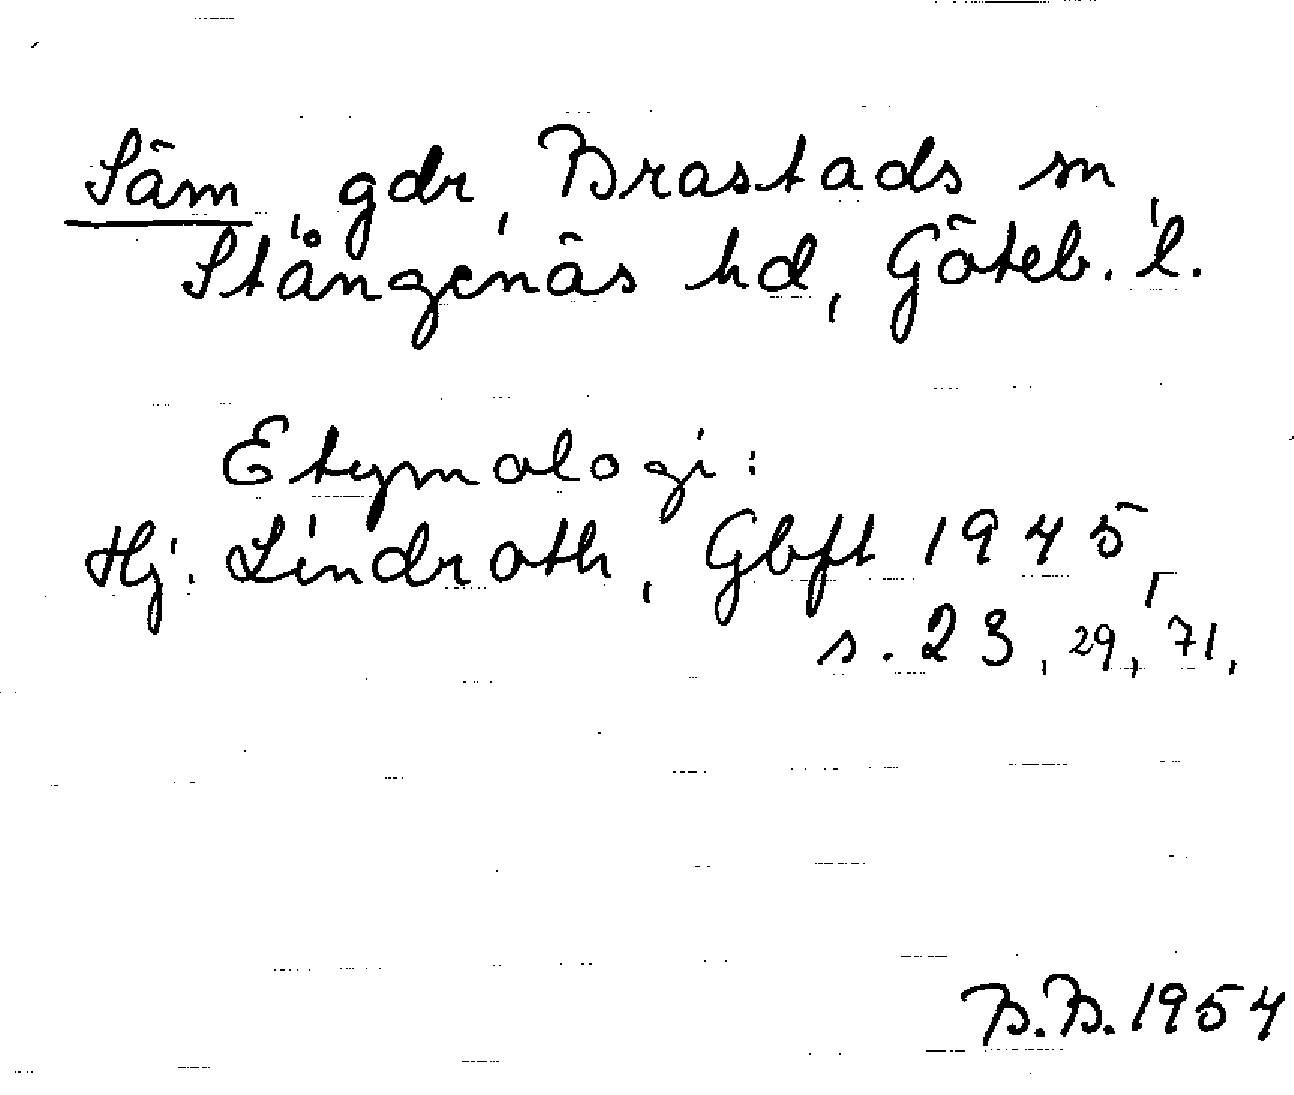 Säm, gdr, Brastads sn,
Stångenäs hd, Göteb. l.
Etymologi:
Hj. Lindroth, Gbft 1945,
s. 23, 29, 71,
B.B. 1954